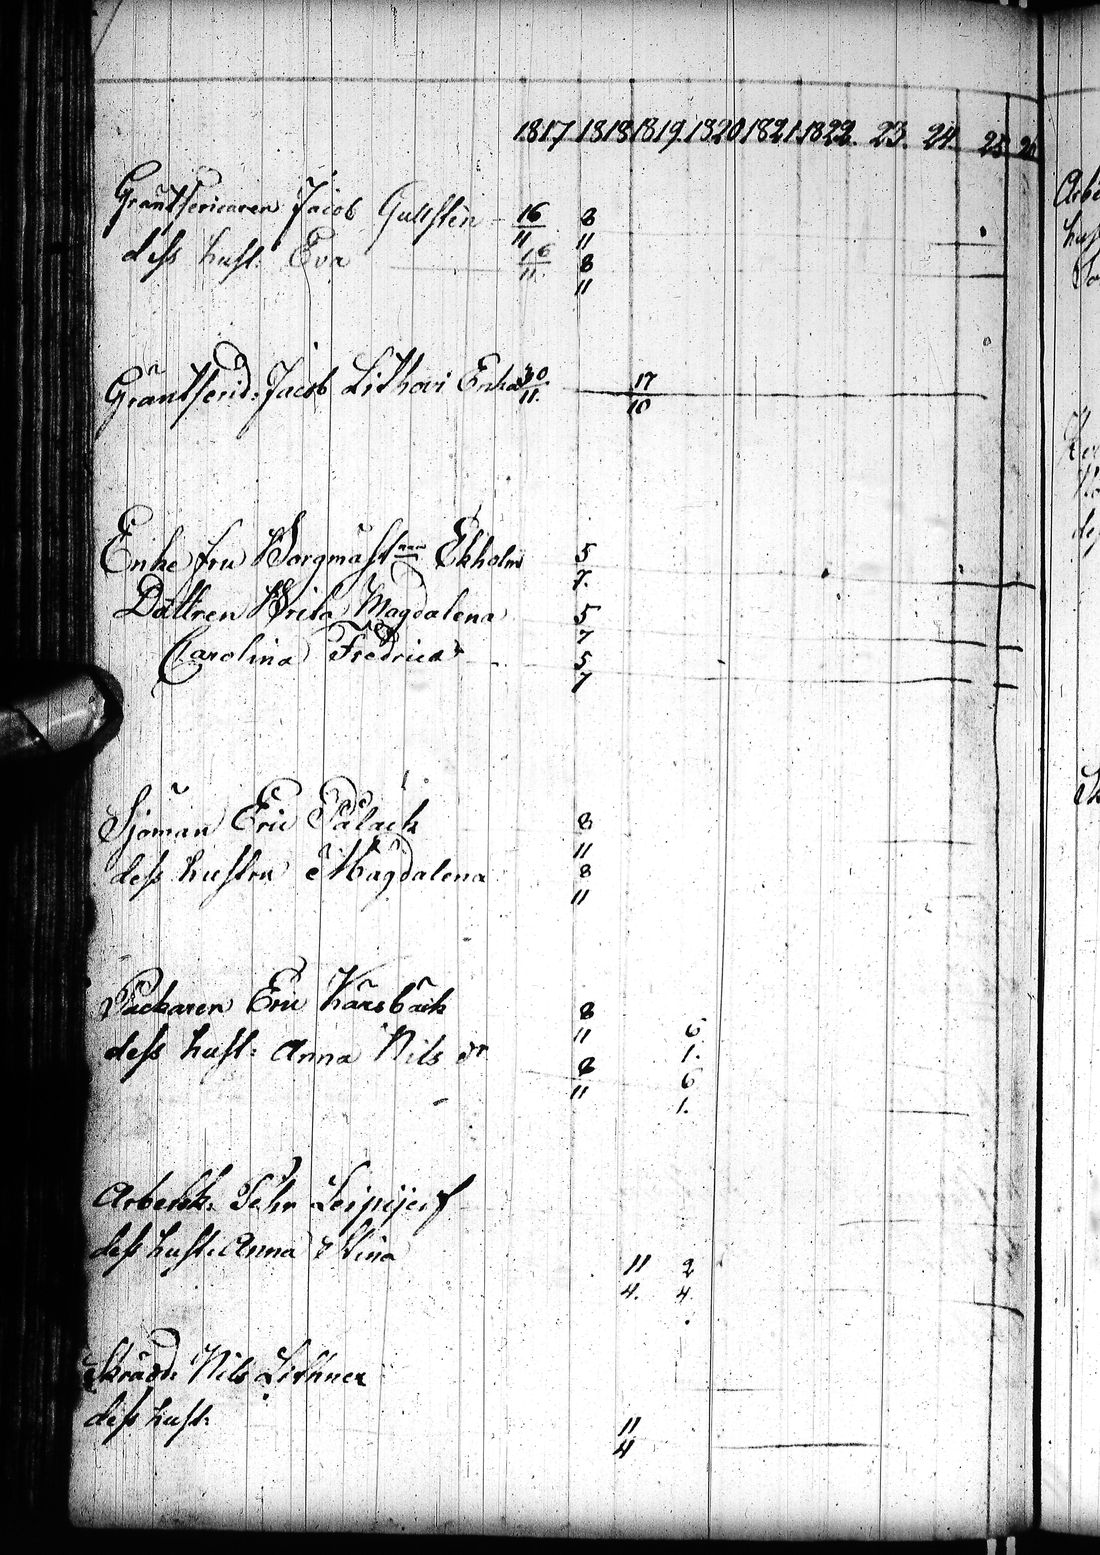 1817 1818 1819. 1820 1821. 1822. 23. 24. 25 26
Gränsridaren Jacob Gullsten 16/11 8/11
dess hust: Eva 16/11. 8/11
Gränsrid: Jacob Lithovi Enka 30/11. 17/10
Enke fru Borgmäst Ekholm 5/7.
Dottren Brita Magdalena 5/7
Carolina Fredrica 5/7
Sjöman Eric Palack 8/11
dess hustru Magdalena 8/11
Packaren Eric Karsbäck 8/11 6/1.
dess hust: Anna Nils dr 8/11 6/1.
Arbetsk: Pehr
dess hust: Anna Stina 11/4. 2/4
Skrädd: Nils Lithner
dess hust: 11/4